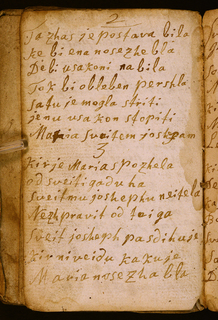 2
Ja zhas je postava bila
ke bi ena nosezhe bla
De bi usakoni na bila
Jok bi obloben pershla
satu je mogla striti
jenu usakon stopiti
Maria sveitem joskpam
3
kir je Marias pozhela
od sveiti gaduha
sveitmu joshephu neitela
Nezh pravit od tviga
Sveit josheph pasdihuje
kir ni veidu kakuje
Maria nosezha bla